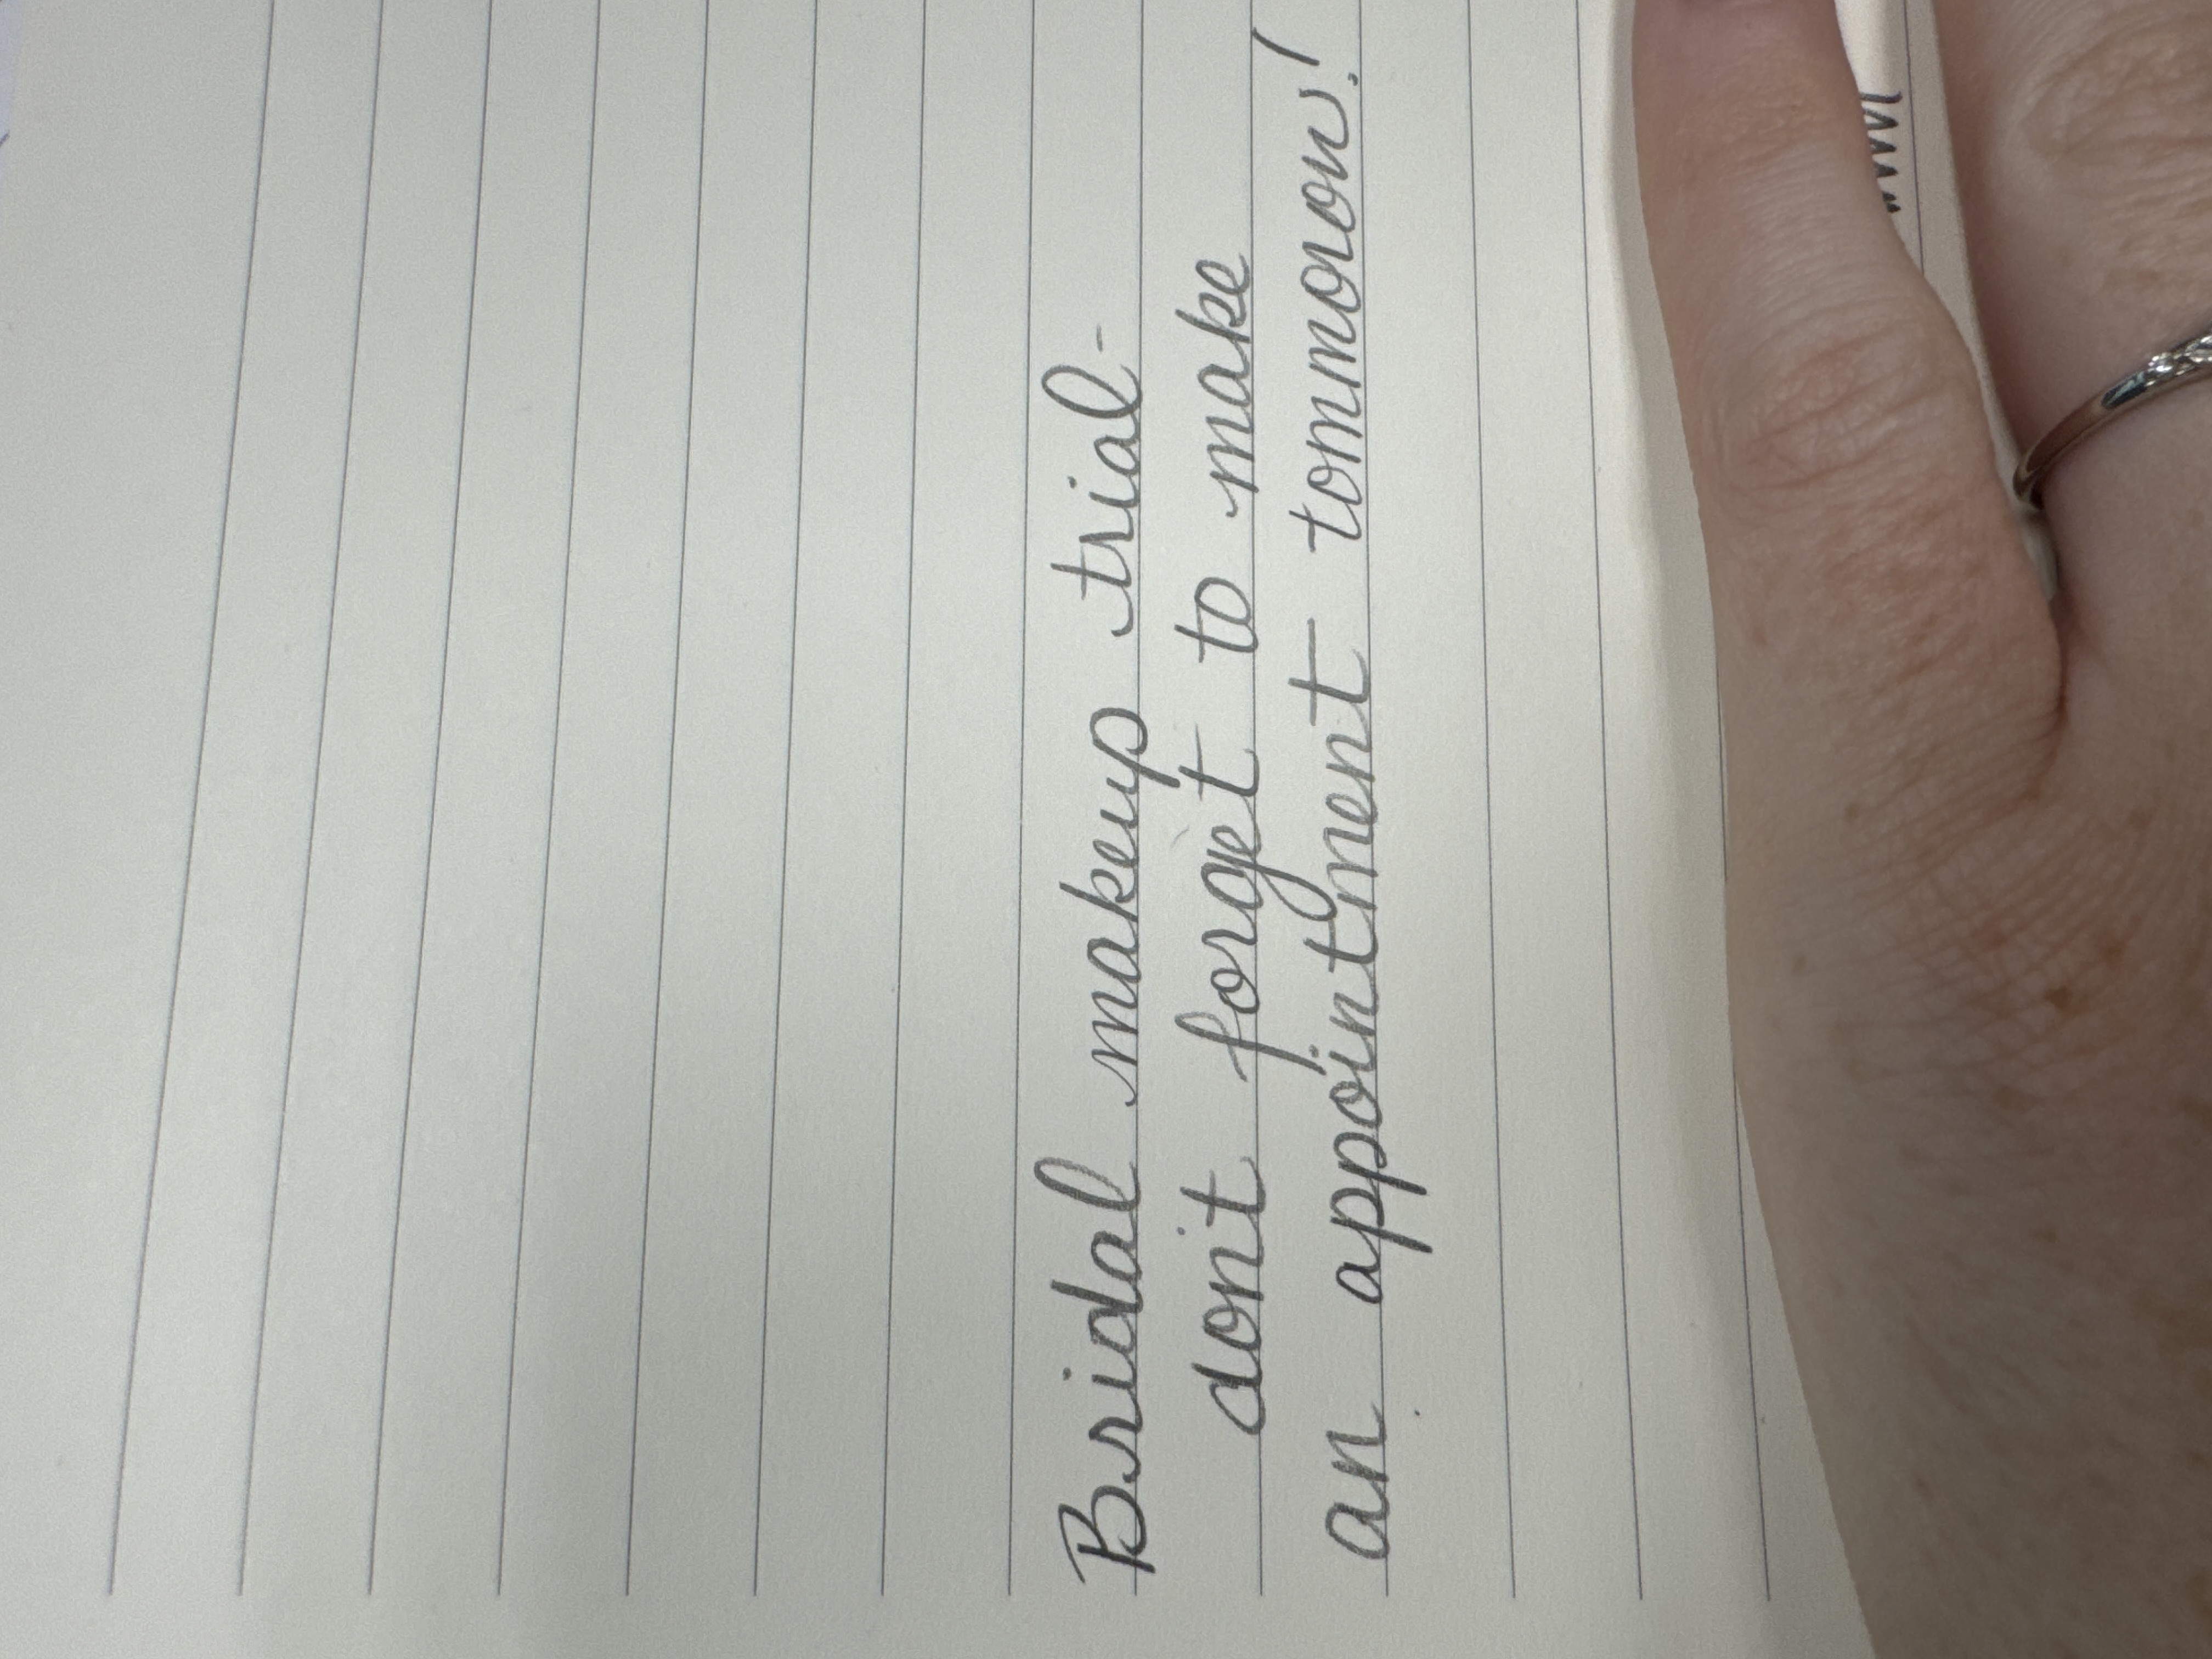 Bridal makeup trial-
don't forget to make
an appointment tommorow!